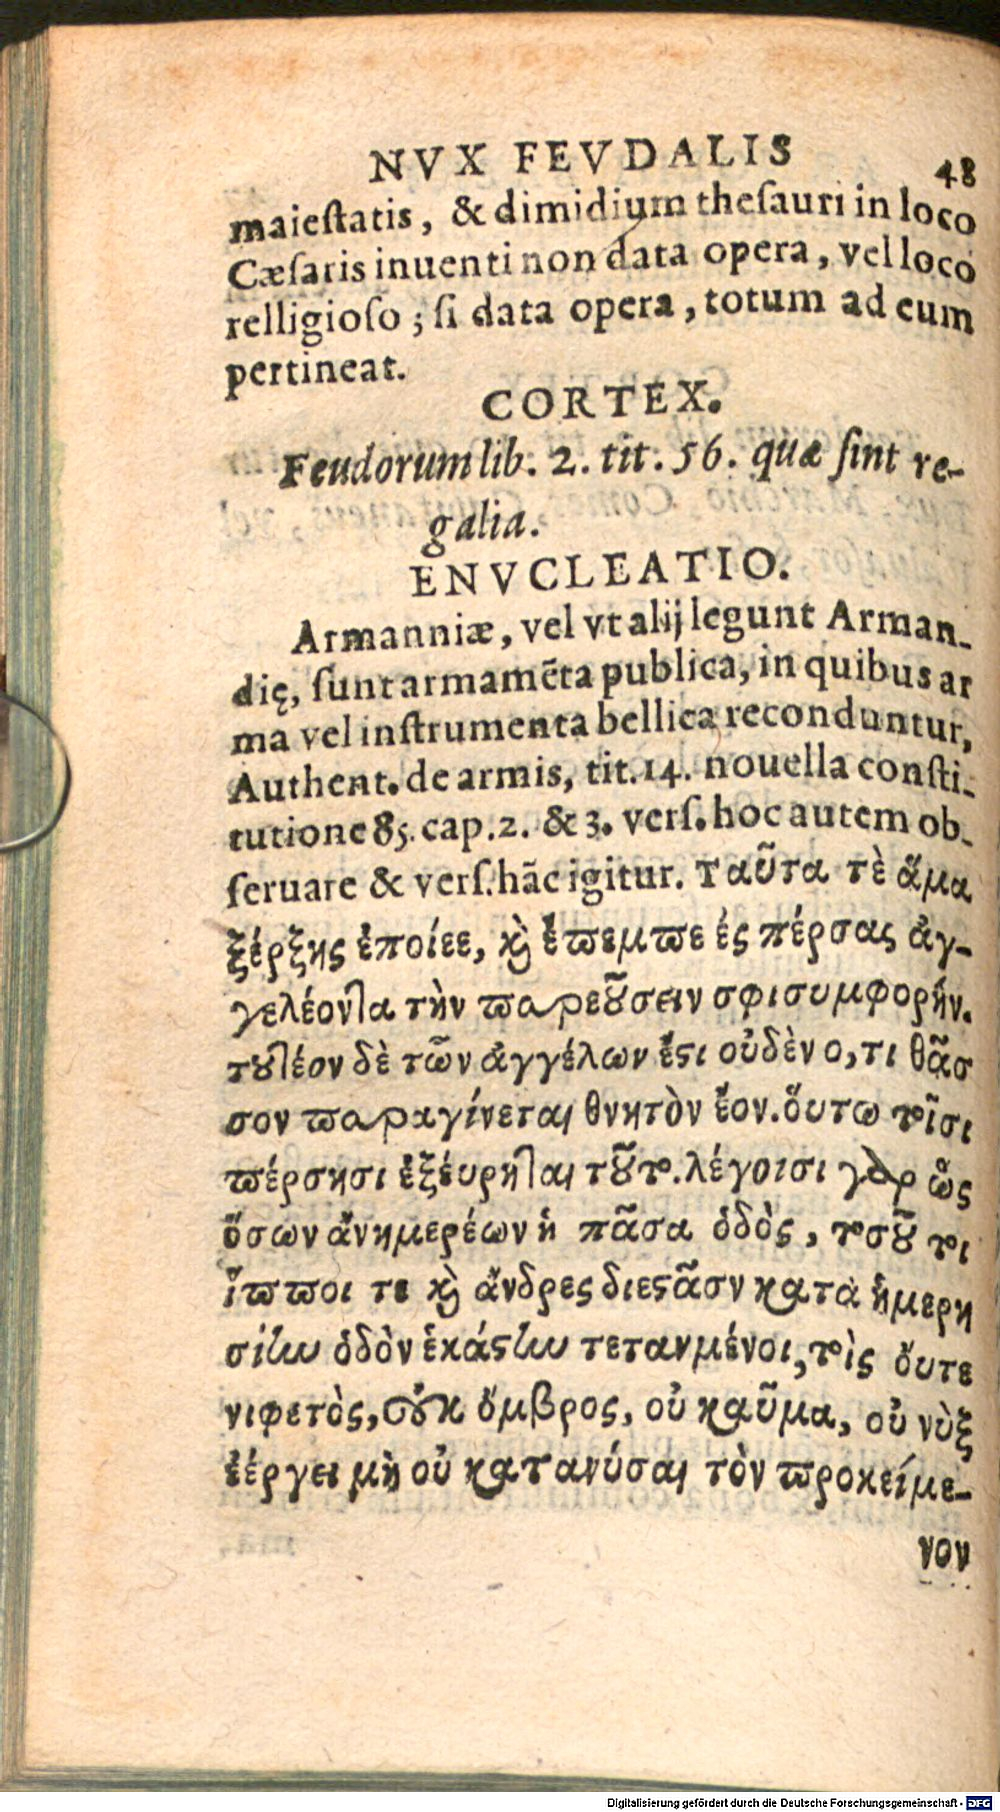 NVX FEVDALIS 48
maieſtatis, & dimidium theſauri in loco
Cæſaris inuenti non data opera, vel loco
relligioſo; ſi data opera, totum ad eum
pertineat.
CORTEX.
Feudorum lib. 2. tit. 56. quæ ſint re-
galia.
ENVCLEATIO.
Armanniæ, vel vt alij legunt Arman-
dię, ſunt armamēta publica, in quibus ar
ma vel inſtrumenta bellica reconduntur,
Authent. de armis, tit. 14. nouella conſti-
tutione 85. cap. 2. & 3. verſ. hoc autem ob-
ſeruare & verſ. hāc igitur. Ταῦτα τὲ ἅμα
ξέρξης ἐποίεε, ϗ̀ ἔπεμπε ἐς πέρσας ἀγ-
γελέοντα τὴν παρεȣ͂σειν σφισυμφορήν.
τȣτέον δὲ τῶν ἀγγέλων ἔϛι οὐδὲν ο, τι θᾶσ
σον παραγίνεται θνητὸν ἔον. ὅυτω τοῖσι
πέρσησι ἐξέυρηται τȣ͂το. λέγοισι γὰρ ὥς
ὅσων ἄνημερέων ἡ πᾶσα ὁδὸς, τοσȣ͂τοι
ἵπποι τε ϗ̀ ἄνδρες διεϛᾶσν κατὰ ἡμερη
σίην ὁδὸν ἑκάϛην τετανμένοι, τοὶς ὄυτε
νιφετὸς, οὐκ ὄμβρος, οὐ καῦμα, οὐ νὺξ
ἐέργει μὴ οὐ κατανύσαι τὸν προκείμε-
νον
Digitalisierung gefördert durch die Deutsche Forschungsgemeinschaft - DFG